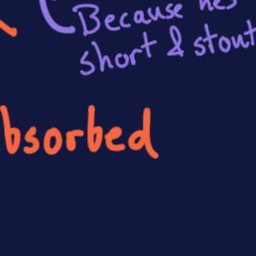 Because he's
short & stout
bsorbed